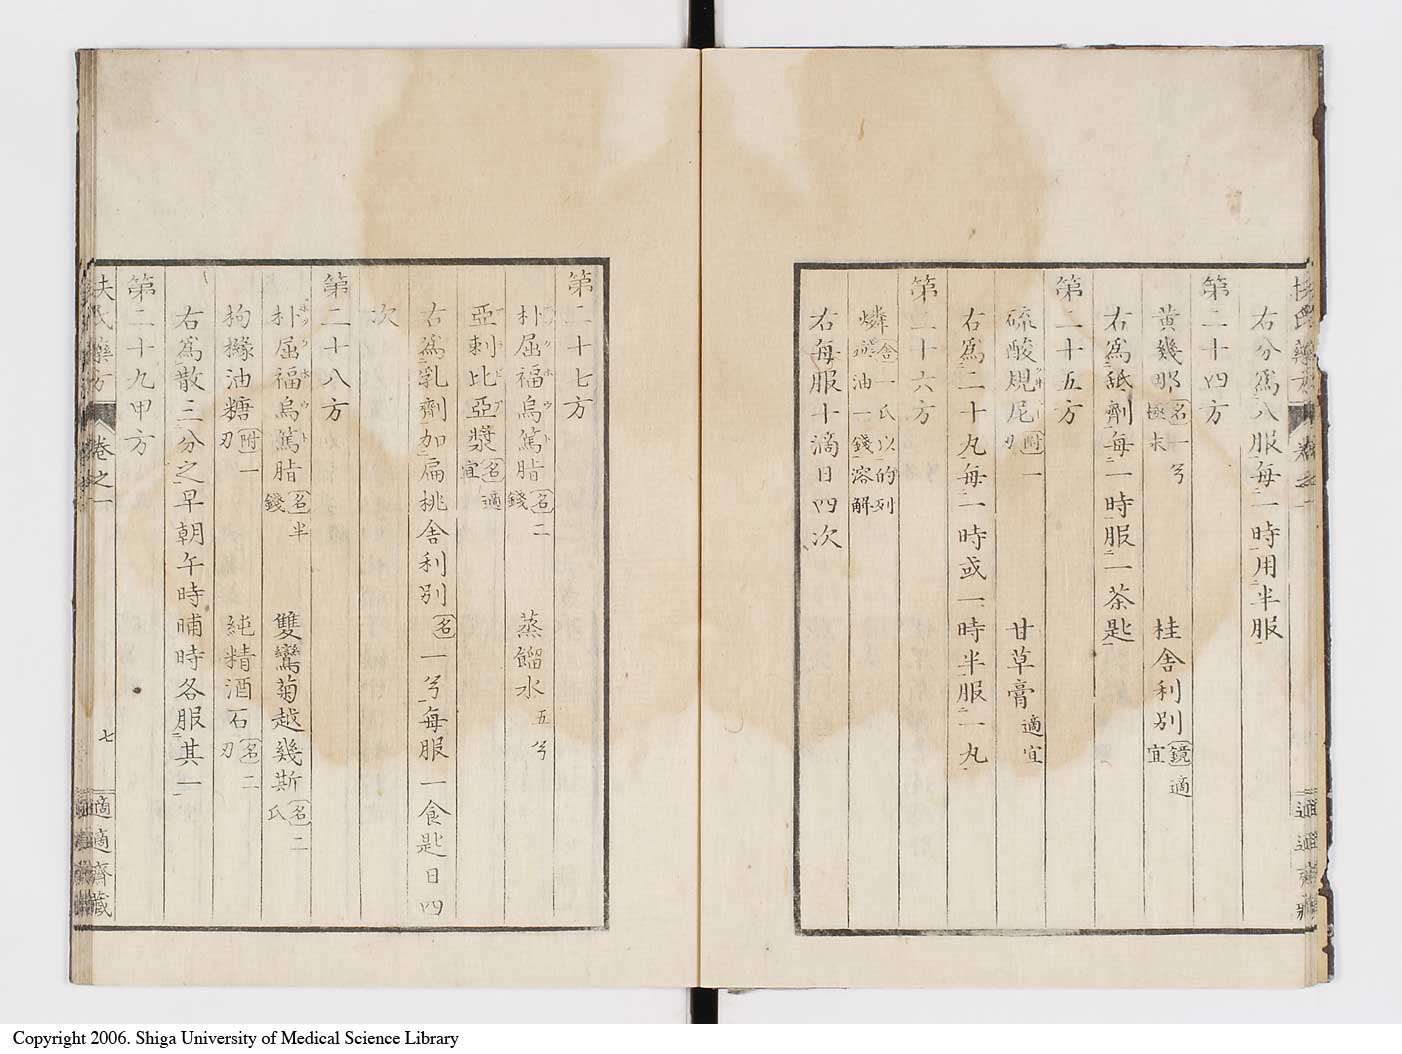 右分爲八服每二時用半服
第二十四方
黄幾那 名 一兮 極末 桂舎利別 鏡 適宜
右爲舐劑每二時服一茶匙
第二十五方
硫酸規尼 附 一刃 甘草膏 適宜
右爲二十丸每一時或一時半服一丸
第二十六方
燐 舎 一氏以的列
油一錢溶解
右每服十滴日四次
第二十七方
朴屈福烏篤脂 名 二錢 蒸餾水 五兮
亞剌比亞漿 名 適宜
右爲乳劑加扁桃舎利別 名 一兮每服一食匙日四
次
第二十八方
朴屈福烏篤脂 名 半錢 雙鸞菊越幾斯 名 二氏
拘櫞油糖 附 一刃 純精酒石 名 二刃
右爲散三分之早朝午時晡時各服其一
第二十九甲方
扶氏藥方 卷之一 七 適適齋藏
Copyright 2006. Shiga University of Medical Science Library